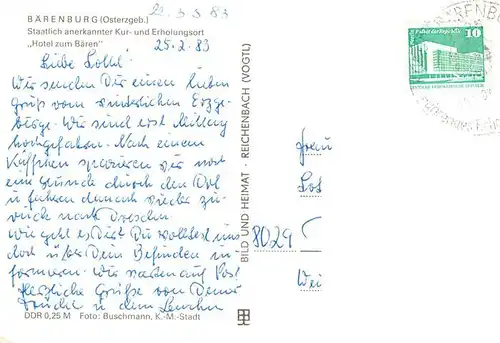 22.3.3 83
BÄRENBURG (Osterzgeb.)
Staatlich anerkannter Kur- und Erholungsort
„Hotel zum Bären"
25.2.83
Liebe Lotte!
Wir senden Dir einen lieben
Gruß vom winterlichen Erzge-
birge. Wir sind erst Mittag
hochgefahren. Nach einem
Käffchen spazieren wir noch
eine Stunde durch den Ort
u. fahren danach wieder zu-
rück nach Dresden.
Wie geht es Dir? Du wolltest uns
doch über Dein Befinden in-
formieren. Wir warten auf Post
Herzliche Grüße von Deiner
u. dem
DDR 0,25 M Foto: Buschmann, K.-M.-Stadt
BILD UND HEIMAT · REICHENBACH (VOGTL)
BÄRENBU
Palast der Republik
10
DEUTSCHE DEMOKRATISCHE REPUBLIK
Frau
Lot
8029
Wei